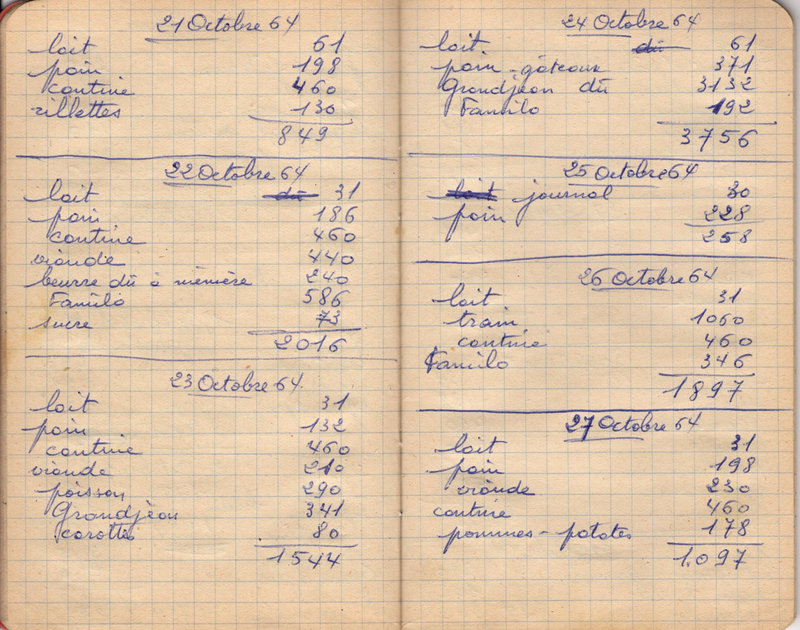 21 Octobre 64
lait 61
pain 198
cantine 460
rillettes 130
849
22 Octobre 64
lait dû 31
pain 186
cantine 460
viande 440
beurre dû à mémère 240
Familo 586
sucre 73
2016
23 Octobre 64
lait 31
pain 132
cantine 460
viande 210
poisson 290
Grandjean 341
carottes 80
1544
24 Octobre 64
lait dû 61
pain - gâteaux 371
Grandjean dû 3132
Familo 192
3756
25 Octobre 64
lait journal 30
pain 228
258
26 Octobre 64
lait 31
train 1060
cantine 460
Familo 346
1897
27 Octobre 64
lait 31
pain 198
viande 230
cantine 460
pommes - patates 178
1.097